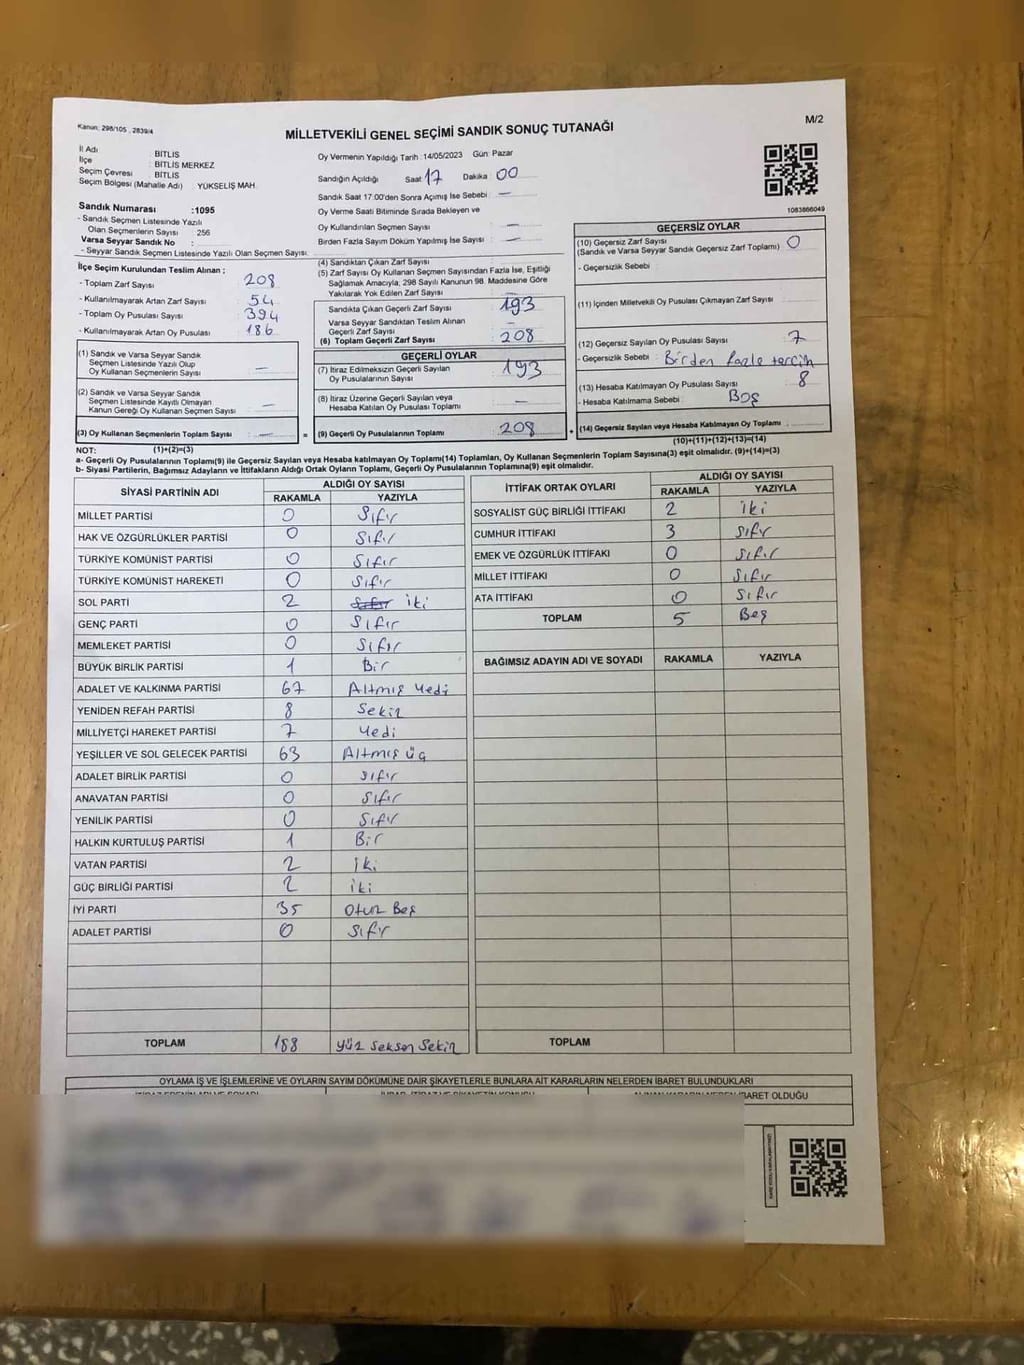 Kanun: 298/105 , 2839/4
M/2
MİLLETVEKİLİ GENEL SEÇİMİ SANDIK SONUÇ TUTANAĞI
İl Adı : BİTLİS
İlçe : BİTLİS MERKEZ
Seçim Çevresi : BİTLİS
Seçim Bölgesi (Mahalle Adı) YÜKSELİŞ MAH.
Sandık Numarası :1095
- Sandık Seçmen Listesinde Yazılı
Olan Seçmenlerin Sayısı : 256
Varsa Seyyar Sandık No :
- Seyyar Sandık Seçmen Listesinde Yazılı Olan Seçmen Sayısı:
Oy Vermenin Yapıldığı Tarih :14/05/2023 Gün: Pazar
Sandığın Açıldığı Saat 17 Dakika 00
Sandık Saat 17:00'den Sonra Açılmış İse Sebebi : —
Oy Verme Saati Bitiminde Sırada Bekleyen ve
Oy Kullandırılan Seçmen Sayısı : —
Birden Fazla Sayım Döküm Yapılmış İse Sayısı : —
1083866049
İlçe Seçim Kurulundan Teslim Alınan ;
- Toplam Zarf Sayısı : 208
- Kullanılmayarak Artan Zarf Sayısı : 54
- Toplam Oy Pusulası Sayısı : 394
- Kullanılmayarak Artan Oy Pusulası : 186
(1) Sandık ve Varsa Seyyar Sandık
Seçmen Listesinde Yazılı Olup
Oy Kullanan Seçmenlerin Sayısı : —
(2) Sandık ve Varsa Seyyar Sandık
Seçmen Listesinde Kayıtlı Olmayan
Kanun Gereği Oy Kullanan Seçmen Sayısı : —
(3) Oy Kullanan Seçmenlerin Toplam Sayısı : —
(1)+(2)=(3)
(4) Sandıktan Çıkan Zarf Sayısı :
(5) Zarf Sayısı Oy Kullanan Seçmen Sayısından Fazla İse, Eşitliği
Sağlamak Amacıyla; 298 Sayılı Kanunun 98. Maddesine Göre
Yakılarak Yok Edilen Zarf Sayısı :
Sandıkta Çıkan Geçerli Zarf Sayısı : 193
Varsa Seyyar Sandıktan Teslim Alınan
Geçerli Zarf Sayısı : —
(6) Toplam Geçerli Zarf Sayısı : 208
GEÇERLİ OYLAR
(7) İtiraz Edilmeksizin Geçerli Sayılan
Oy Pusulalarının Sayısı : 193
(8) İtiraz Üzerine Geçerli Sayılan veya
Hesaba Katılan Oy Pusulası Toplamı : —
= (9) Geçerli Oy Pusulalarının Toplamı : 208 +
GEÇERSİZ OYLAR
(10) Geçersiz Zarf Sayısı : 0
(Sandık ve Varsa Seyyar Sandık Geçersiz Zarf Toplamı)
- Geçersizlik Sebebi :
(11) İçinden Milletvekili Oy Pusulası Çıkmayan Zarf Sayısı :
(12) Geçersiz Sayılan Oy Pusulası Sayısı : 7
- Geçersizlik Sebebi : Birden fazla tercih
(13) Hesaba Katılmayan Oy Pusulası Sayısı : 8
- Hesaba Katılmama Sebebi : Boş
(14) Geçersiz Sayılan veya Hesaba Katılmayan Oy Toplamı :
(10)+(11)+(12)+(13)=(14)
NOT:
a- Geçerli Oy Pusulalarının Toplamı(9) ile Geçersiz Sayılan veya Hesaba Katılmayan Oy Toplamı(14) Toplamları, Oy Kullanan Seçmenlerin Toplam Sayısına(3) eşit olmalıdır. (9)+(14)=(3)
b- Siyasi Partilerin, Bağımsız Adayların ve İttifakların Aldığı Ortak Oyların Toplamı, Geçerli Oy Pusulalarının Toplamına(9) eşit olmalıdır.
SİYASİ PARTİNİN ADI ALDIĞI OY SAYISI
RAKAMLA YAZIYLA
MİLLET PARTİSİ 0 Sıfır
HAK VE ÖZGÜRLÜKLER PARTİSİ 0 Sıfır
TÜRKİYE KOMÜNİST PARTİSİ 0 Sıfır
TÜRKİYE KOMÜNİST HAREKETİ 0 Sıfır
SOL PARTİ 2 Sıfır iki
GENÇ PARTİ 0 Sıfır
MEMLEKET PARTİSİ 0 Sıfır
BÜYÜK BİRLİK PARTİSİ 1 Bir
ADALET VE KALKINMA PARTİSİ 67 Altmış Yedi
YENİDEN REFAH PARTİSİ 8 Sekiz
MİLLİYETÇİ HAREKET PARTİSİ 7 Yedi
YEŞİLLER VE SOL GELECEK PARTİSİ 63 Altmış üç
ADALET BİRLİK PARTİSİ 0 Sıfır
ANAVATAN PARTİSİ 0 Sıfır
YENİLİK PARTİSİ 0 Sıfır
HALKIN KURTULUŞ PARTİSİ 1 Bir
VATAN PARTİSİ 2 İki
GÜÇ BİRLİĞİ PARTİSİ 2 iki
İYİ PARTİ 35 Otuz Beş
ADALET PARTİSİ 0 Sıfır
TOPLAM 188 Yüz Seksen Sekiz
İTTİFAK ORTAK OYLARI ALDIĞI OY SAYISI
RAKAMLA YAZIYLA
SOSYALİST GÜÇ BİRLİĞİ İTTİFAKI 2 iki
CUMHUR İTTİFAKI 3 sıfır
EMEK VE ÖZGÜRLÜK İTTİFAKI 0 Sıfır
MİLLET İTTİFAKI 0 Sıfır
ATA İTTİFAKI 0 Sıfır
TOPLAM 5 Beş
BAĞIMSIZ ADAYIN ADI VE SOYADI RAKAMLA YAZIYLA
TOPLAM
OYLAMA İŞ VE İŞLEMLERİNE VE OYLARIN SAYIM DÖKÜMÜNE DAİR ŞİKAYETLERLE BUNLARA AİT KARARLARIN NELERDEN İBARET BULUNDUKLARI
İBARET OLDUĞU